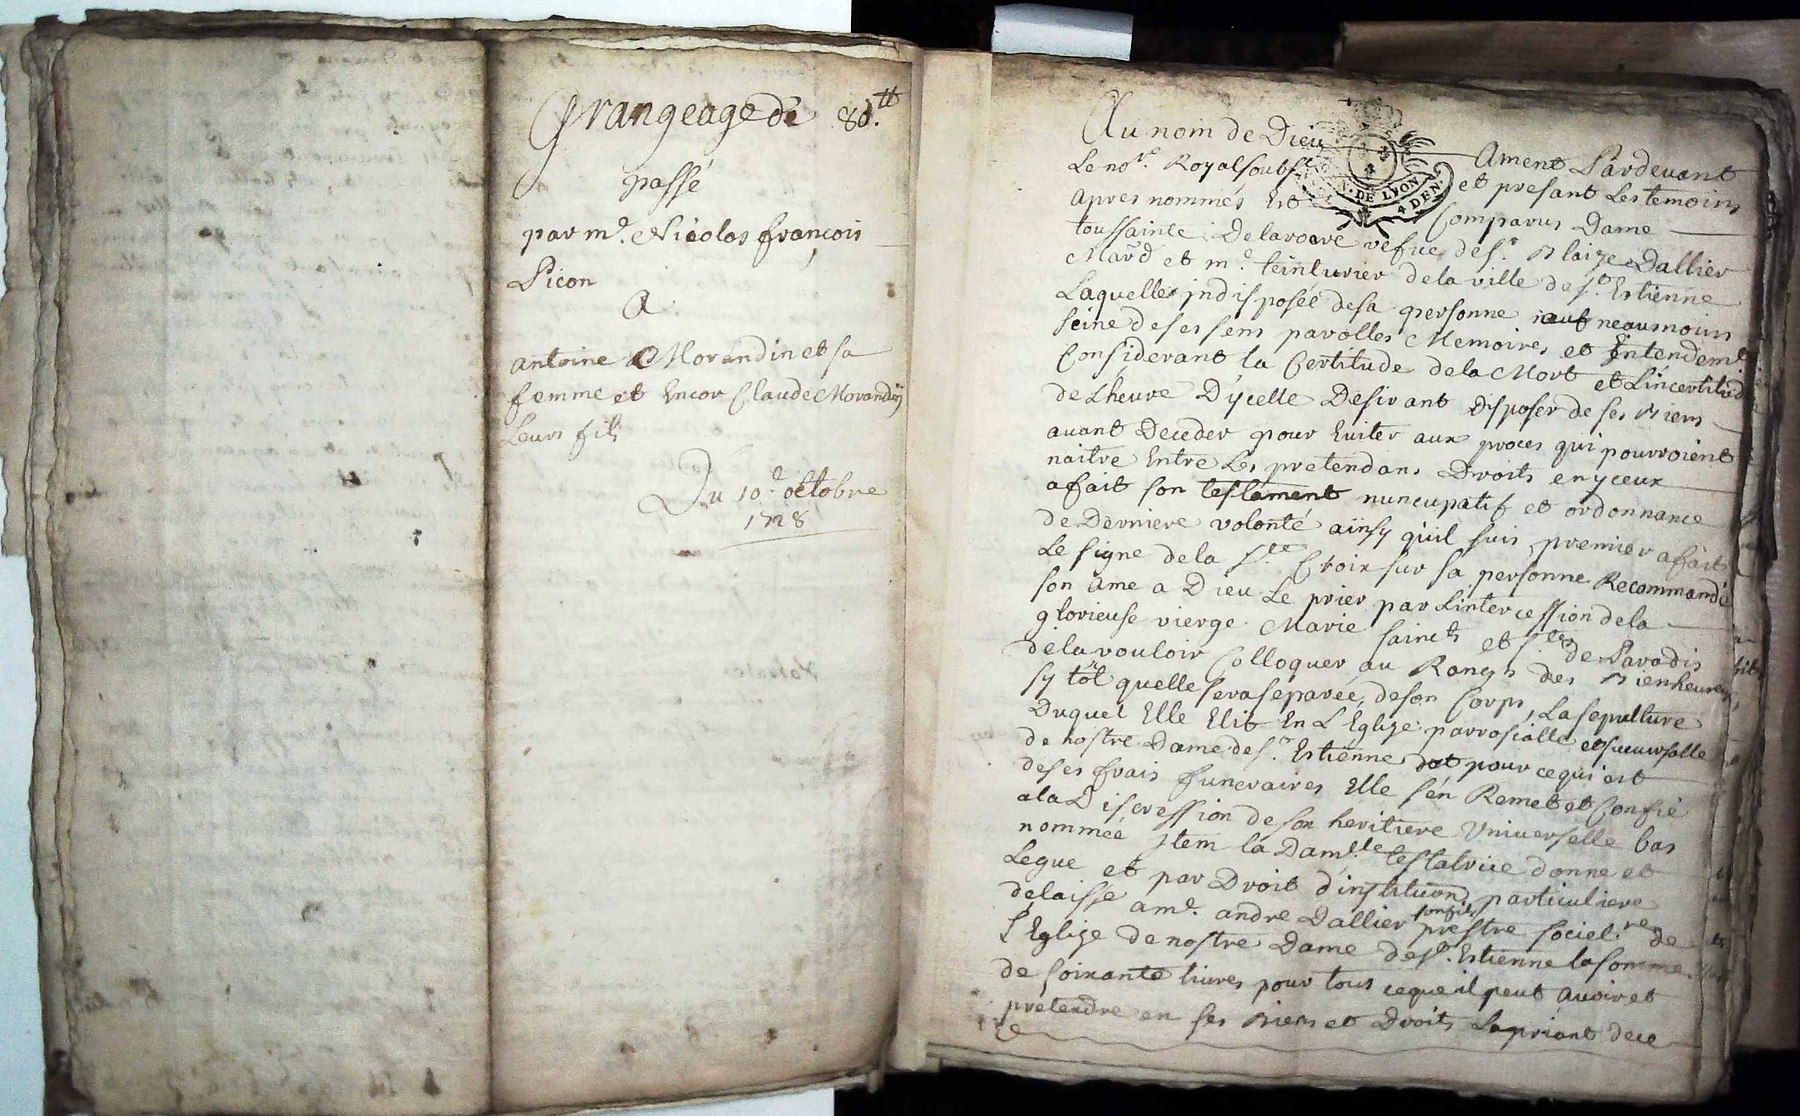 Grangeage de 80.tt
passé
par mr. Nicolas françois
Picon
A
antoine Morandin et sa
femme et Encor Claude Morandin
Leurs fils
Du 10e. octobre
1728
Au nom de Dieu Ament Pardevant
Le nore. Royal soubsé. et presant Les temoins
apres nommés Est Comparus Dame
toussainte Delaroare vefue de sr. Blaize Dallier
Mard et me. teinturier de la ville de st. Estienne
Laquelle indisposée de sa personne neaumoins
seine de ses sens parolles Memoires et Entendemt
Considerant la Certitude de la Mort et Lincertitud
de Lheure D'ycelle Desirant disposer de ses Biens
auant Deceder pour Euiter aux proces qui pourroient
naitre Entre Les pretendans Droits en yceux
a fait son testament nuncupatif et ordonnance
de Derniere volonté ainsy quil suis, premier a fait
Le signe de la Ste. Croix sur sa personne Recommandé
son ame a Dieu Le prier par L'intercession de la
glorieuse vierge Marie saincts et stes de Paradis
de la vouloir Colloquer au Rangs des Bienheureux
sy tôt quelle sera séparée, de son Corps, La sepulture
Duquel Elle Elit En L'Eglize parrosialle et sucursalle
de nostre Dame de st. Estienne pour ce qui est
de ses frais funeraires Elle s'en Remet et Confie
a la Discression de son heritiere Vniuerselle bas
nommée Item la Damlle testatrice donne et
Legue et par Droit d'institution particuliere
delaisse a me. andre Dallier son fils prestre societre de
L'Eglize de nostre Dame de st. Estienne la somme
de soixante liures pour tous ce que il peut auoir et
pretendre en ses Biens et Droits Le priant de ce
ce
N. DE LYON
4 DEN.